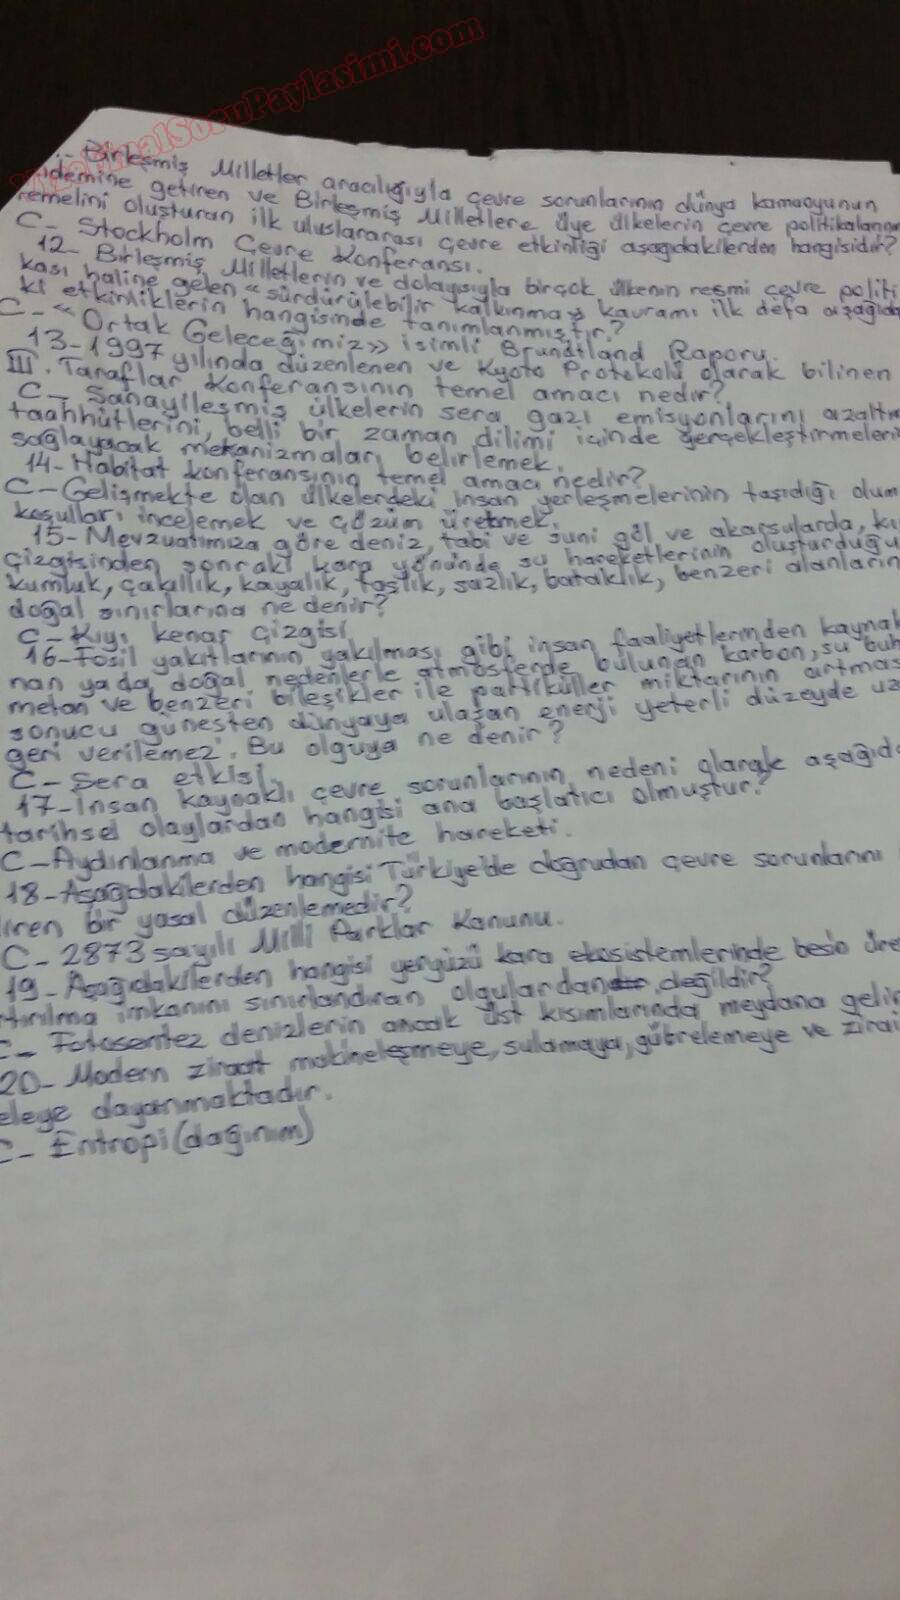 VizeFinalSoruPaylasimi.com
Birleşmiş Milletler aracılığıyla çevre sorunlarının dünya kamuoyunun
demine getiren ve Birleşmiş Milletlere üye ülkelerin çevre politikalarını
temelini oluşturan ilk uluslararası çevre etkinliği aşağıdakilerden hangisidir?
C- Stockholm Çevre Konferansı.
12- Birleşmiş Milletlerin ve dolayısıyla birçok ülkenin resmi çevre politi
kası haline gelen "sürdürülebilir kalkınma" kavramı ilk defa aşağıda
ki etkinliklerin hangisinde tanımlanmıştır?
C- "Ortak Geleceğimiz" isimli Brundtland Raporu.
13- 1997 yılında düzenlenen ve Kyoto Protokolü olarak bilinen
III. Taraflar Konferansının temel amacı nedir?
C- Sanayileşmiş ülkelerin sera gazı emisyonlarını azaltm
taahhütlerini, belli bir zaman dilimi içinde gerçekleştirmelerin
sağlayacak mekanizmaları belirlemek.
14- Habitat konferansının temel amacı nedir?
C- Gelişmekte olan ülkelerdeki insan yerleşmelerinin taşıdığı olum
koşulları incelemek ve çözüm üretmek.
15- Mevzuatımıza göre deniz, tabi ve suni göl ve akarsularda, kı
çizgisinden sonraki kara yönünde su hareketlerinin oluşturduğu
kumluk, çakıllık, kayalık, taşlık, sazlık, bataklık, benzeri alanların
doğal sınırlarına ne denir?
C- Kıyı kenar çizgisi
16- Fosil yakıtlarının yakılması gibi insan faaliyetlerinden kaynak
nan ya da doğal nedenlerle atmosferde bulunan karbon, su buh
metan ve benzeri bileşikler ile partiküller miktarının artmas
sonucu güneşten dünyaya ulaşan enerji yeterli düzeyde uz
geri verilemez. Bu olguya ne denir?
C- Sera etkisi.
17- İnsan kaynaklı çevre sorunlarının nedeni olarak aşağıda
tarihsel olaylardan hangisi ana başlatıcı olmuştur?
C- Aydınlanma ve modernite hareketi.
18- Aşağıdakilerden hangisi Türkiye'de doğrudan çevre sorunlarını
iren bir yasal düzenlemedir?
C- 2873 sayılı Milli Parklar Kanunu.
19- Aşağıdakilerden hangisi yeryüzü kara ekosistemlerinde besin üre
tırılma imkanını sınırlandıran olgulardan değildir?
C- Fotosentez denizlerin ancak üst kısımlarında meydana gelir
20- Modern ziraat makineleşmeye, sulamaya, gübrelemeye ve zirai
eleye dayanmaktadır.
C- Entropi (dağınım)